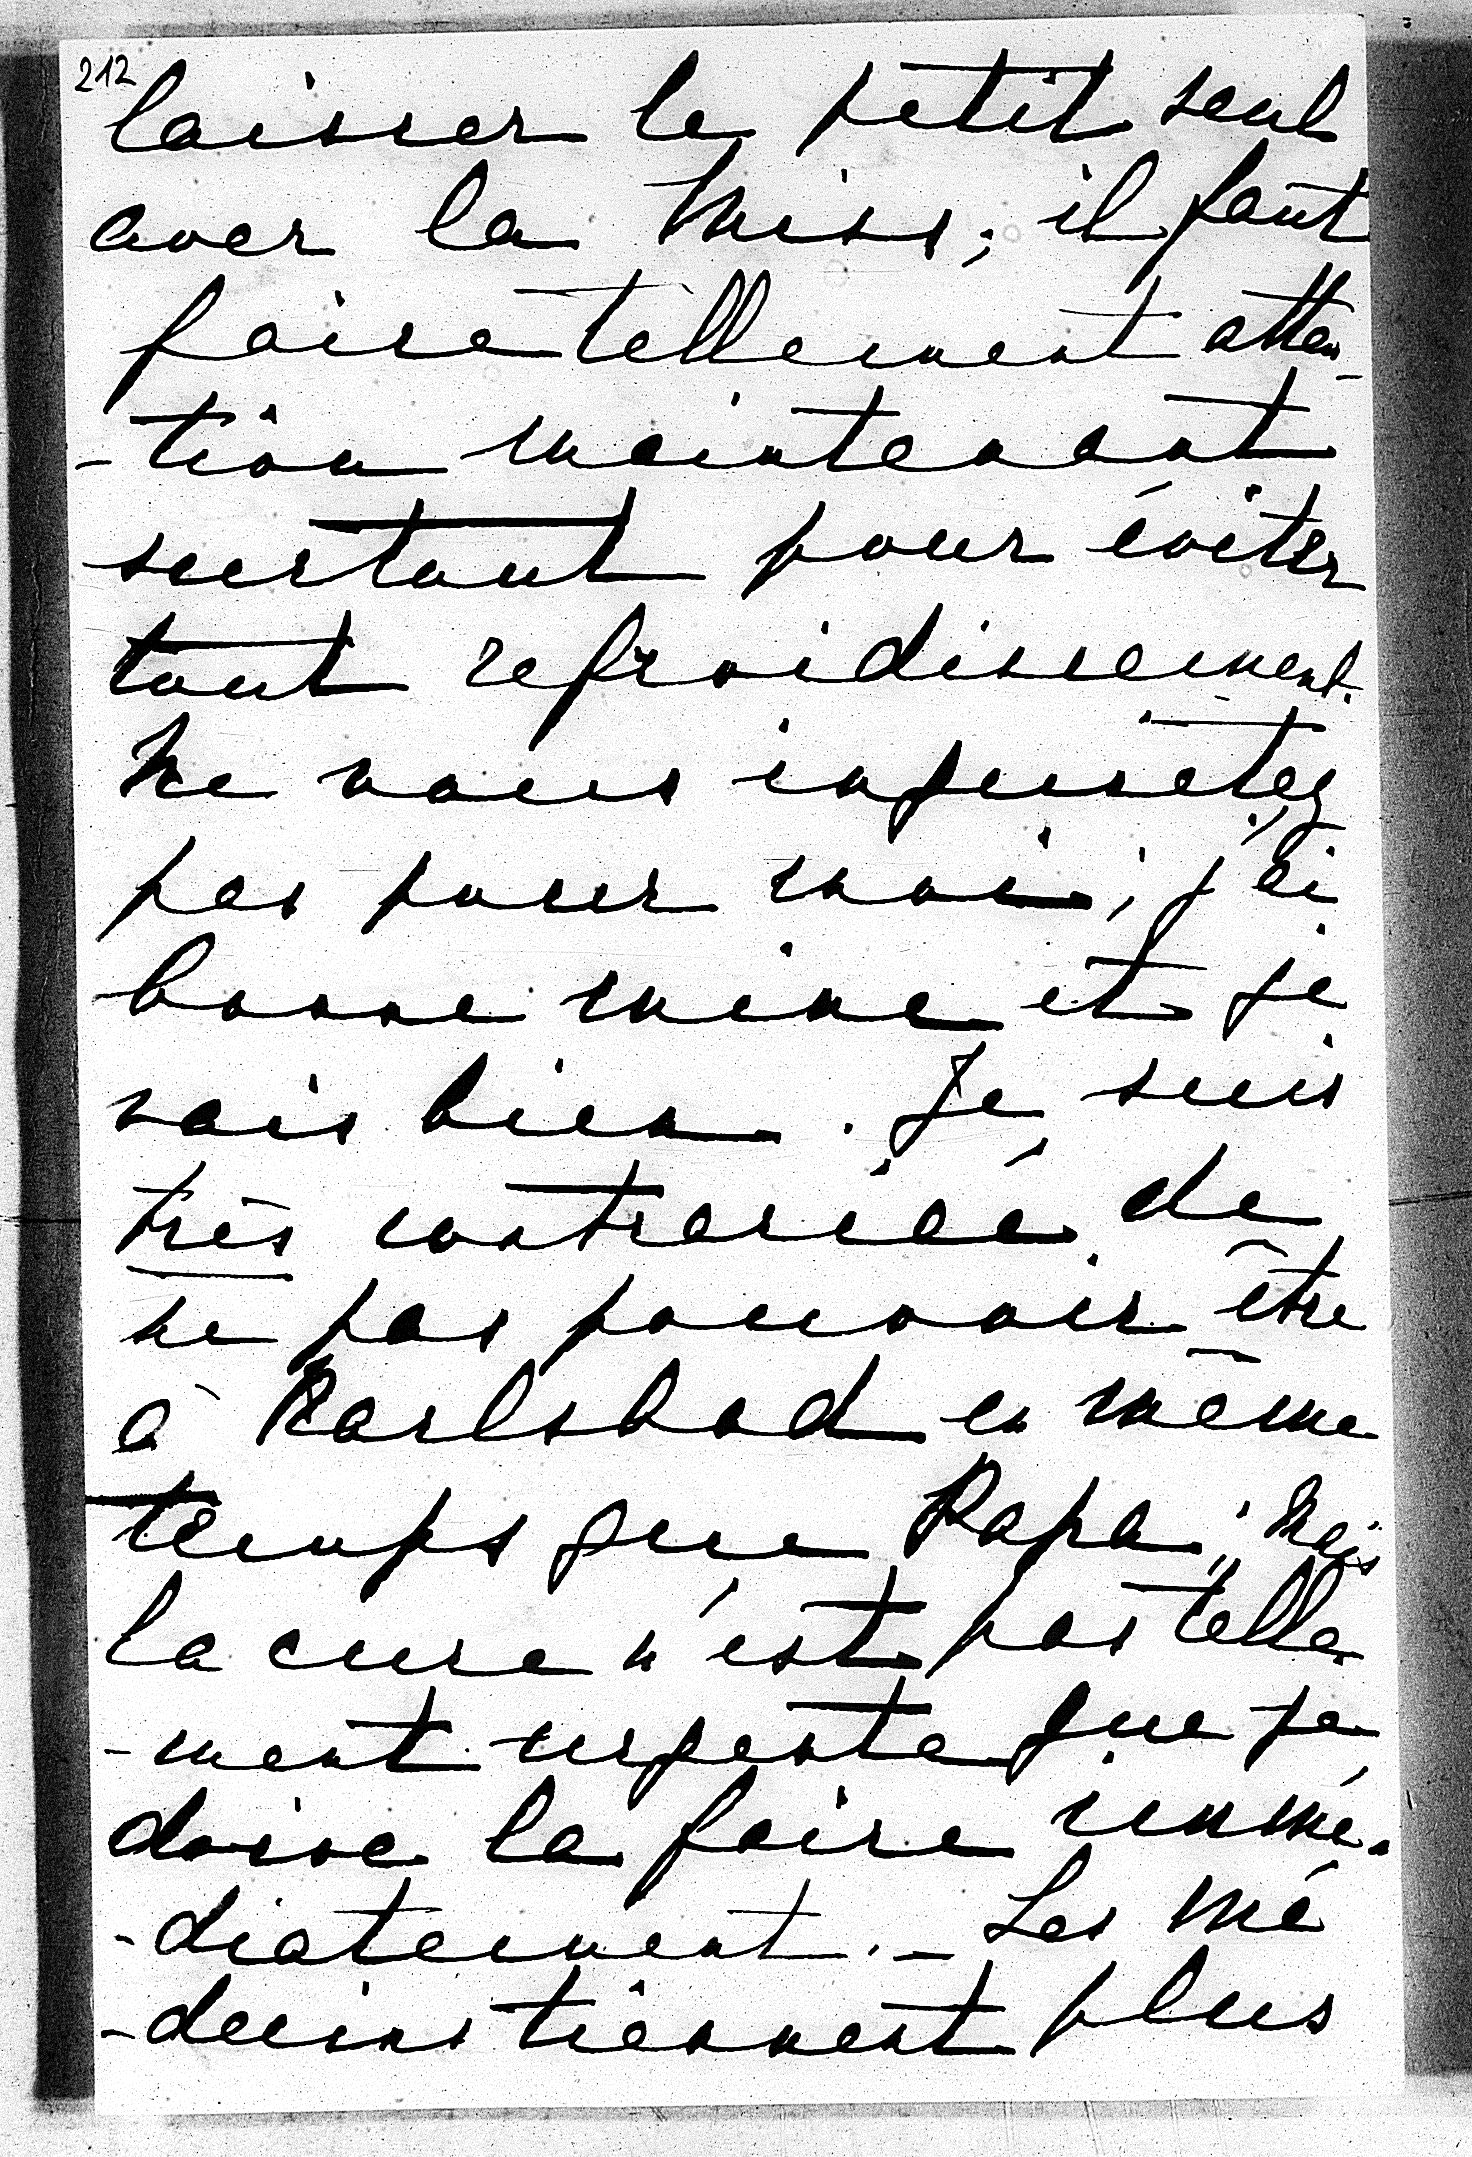 212
laisser le petit seul
avec la Miss; il faut
faire tellement atten-
-tion maintenant
surtout pour éviter
tout refroidissement.
Ne vous inquiétez
pas pour moi; j'ai
bonne mine et je
vais bien. Je suis
très contrariée de
ne pas pouvoir être
à Karlsbad en même
temps que Papa; mais
la cure n'est pas telle-
-ment urgente que je
doive la faire immé-
-diatement. - Les mé
-decins tiennent plus